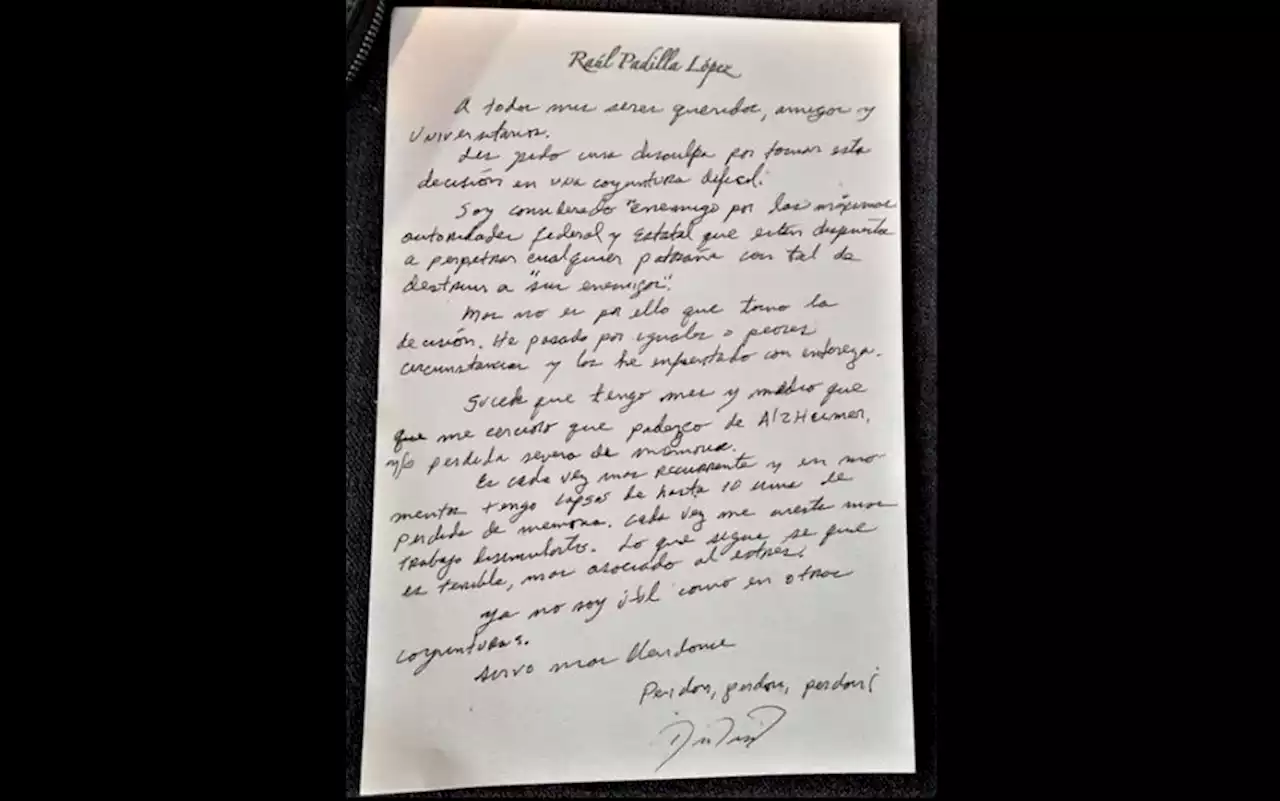 Raúl Padilla López
A todos mis seres queridos, amigos y
Universitarios.
Les pido una disculpa por tomar esta
decisión en una coyuntura dificil.
Soy considerado "enemigo por las máximas
autoridades federal y Estatal que estan dispuestas
a perpetrar cualquier patraña con tal de
destruir a "sus enemigos".
Mas no es por ello que tomo la
decisión. He pasado por iguales o peores
circunstancias y los he enfrentado con entereza.
Sucede que tengo mes y medio que
que me cercioro que padezco de AlzHeimer,
y/o perdida severa de memoria.
Es cada vez mas recurrente y en mo
mentos tengo lapsos de hasta 10 de
perdida de memoria. Cada vez me cuesta mas
trabajo disimularlo. Lo que sigue se que
es terrible, mas asociado al estres.
Ya no soy útil como en otras
coyunturas.
Sirvo mas
Perdon, perdon, perdon!